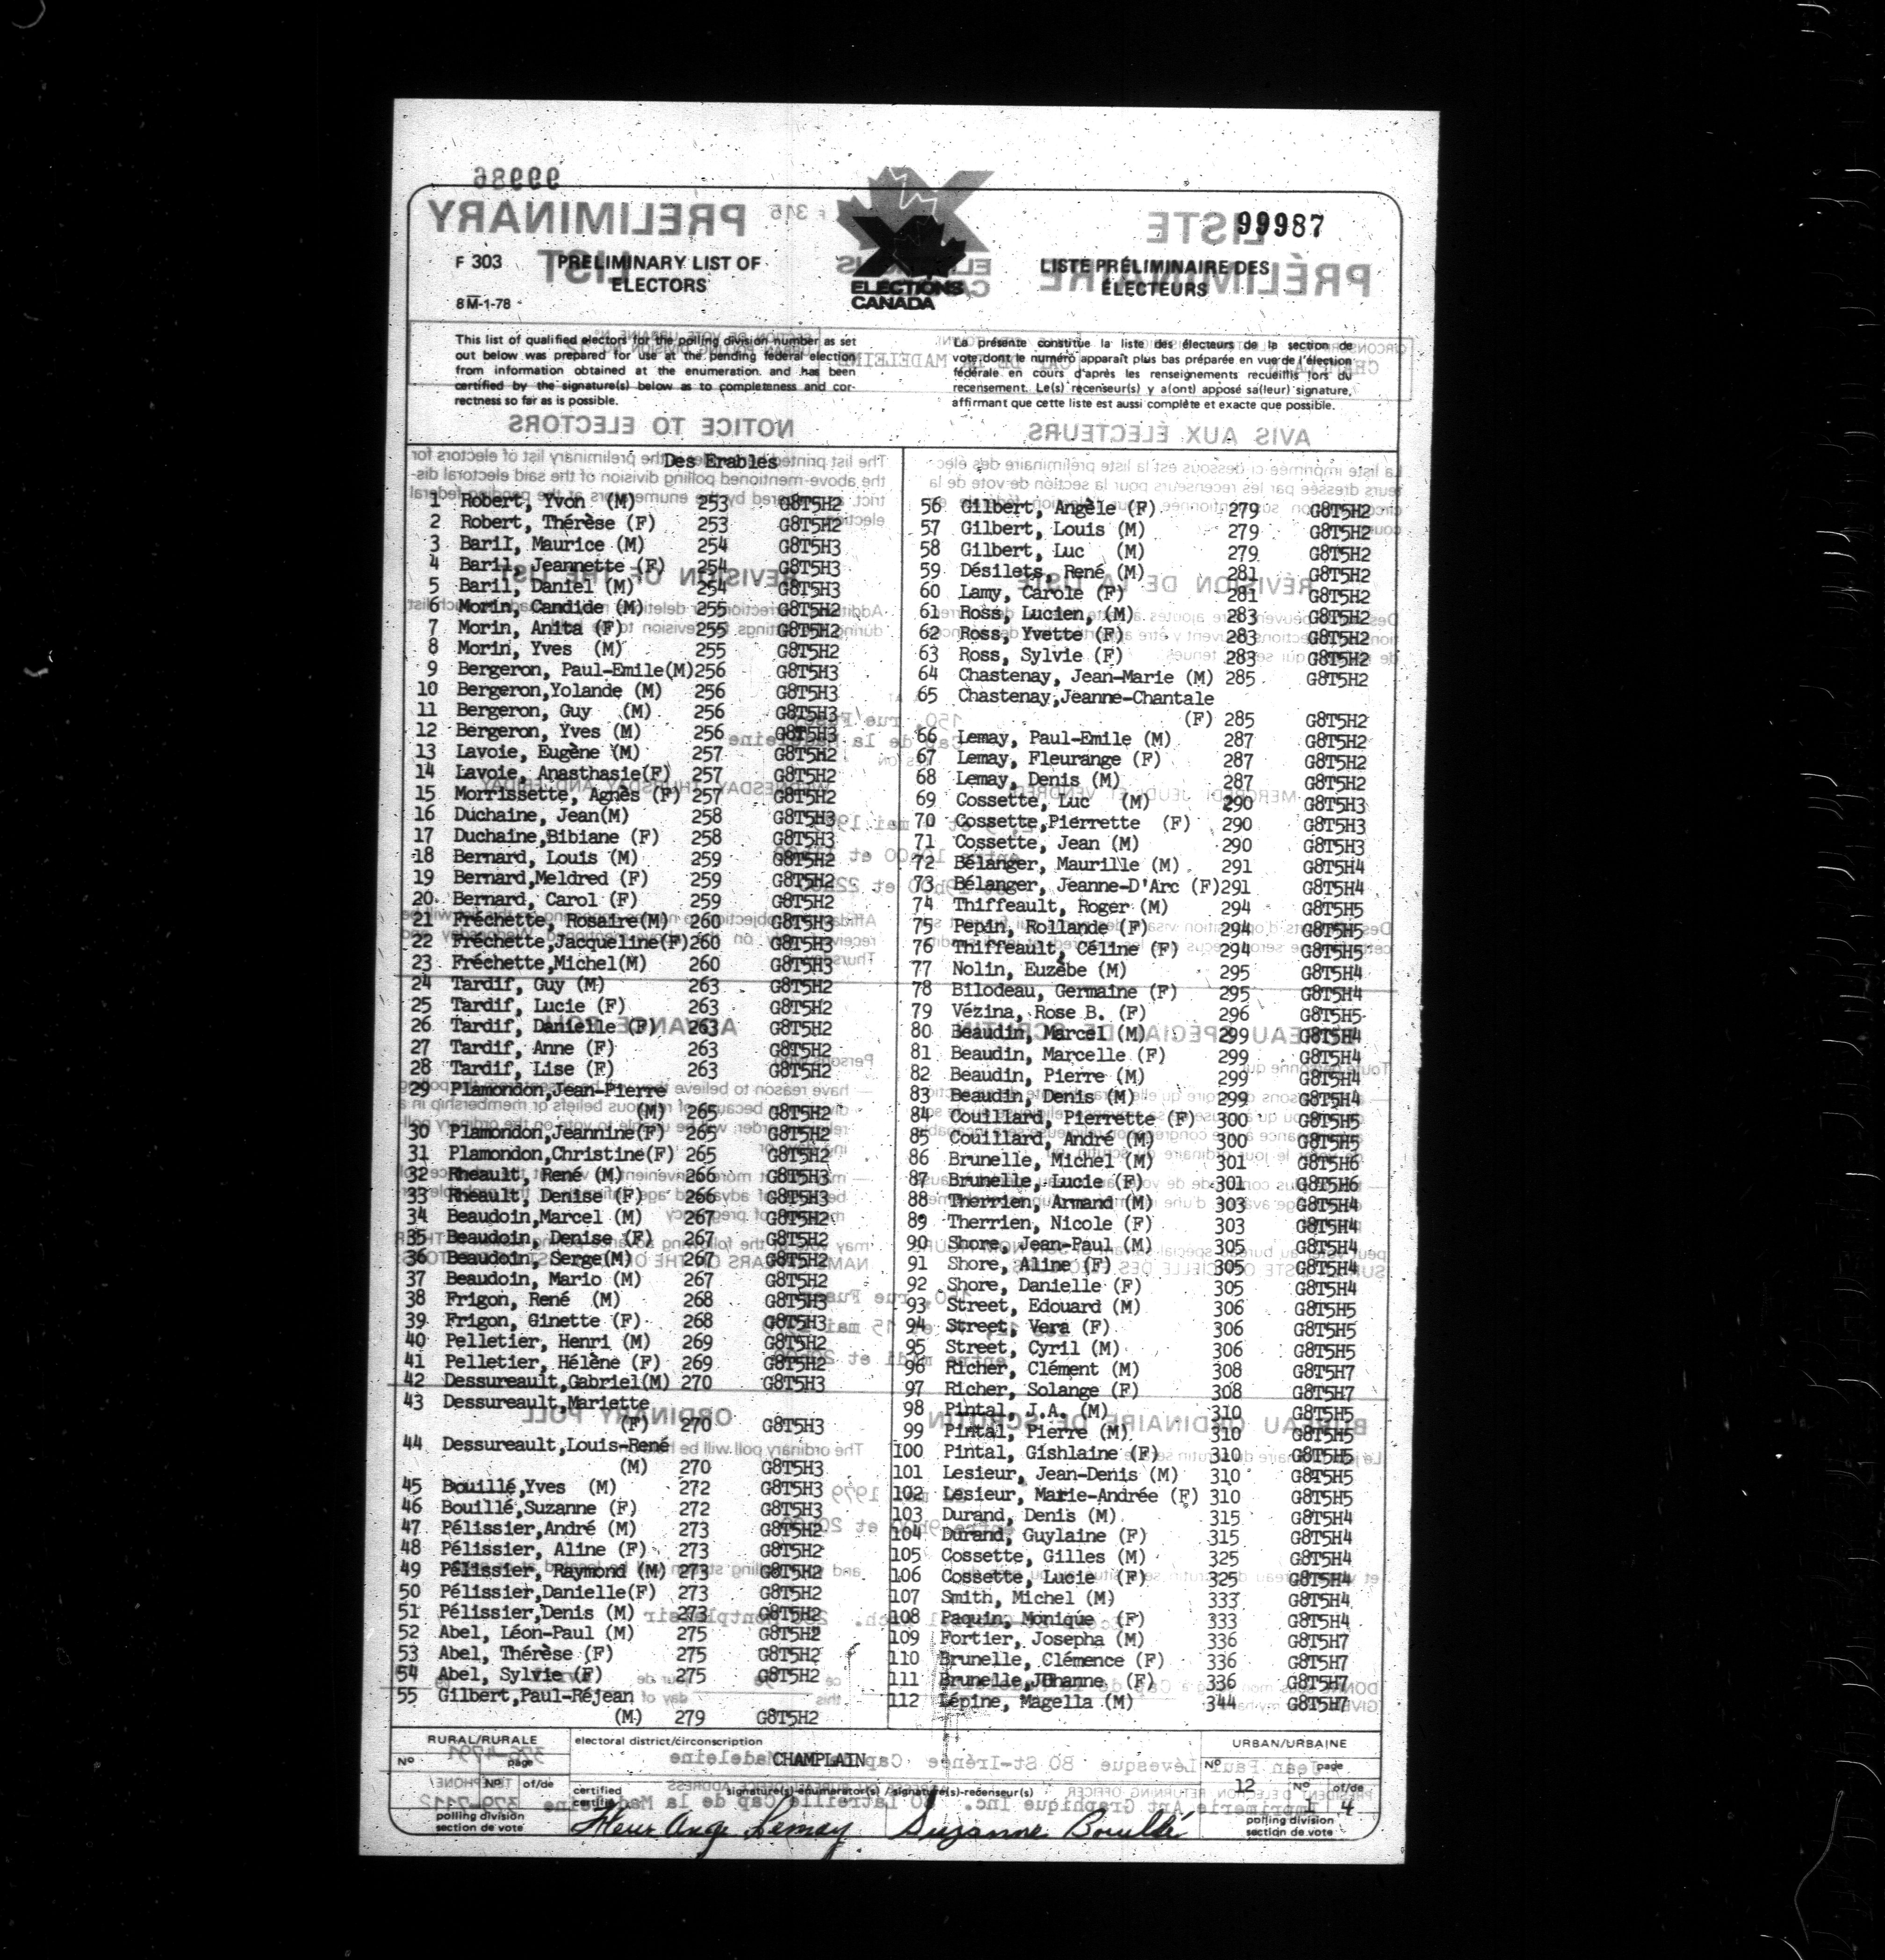 99987
F 303
PRELIMINARY LIST OF
ELECTORS
8M-1-78
ELECTIONS
CANADA
LISTE PRÉLIMINAIRE DES
ÉLECTEURS
This list of qualified electors for the polling division number as set
out below was prepared for use at the pending federal election
from information obtained at the enumeration and has been
certified by the signature(s) below as to completeness and cor-
rectness so far as is possible.
La présente constitue la liste des électeurs de la section de
vote dont le numéro apparaît plus bas préparée en vue de l'élection
fédérale en cours d'après les renseignements recueillis lors du
recensement. Le(s) recenseur(s) y a(ont) apposé sa(leur) signature,
affirmant que cette liste est aussi complète et exacte que possible.
Des Erables
1 Robert, Yvon (M) 253 G8T5H2
2 Robert, Thérèse (F) 253 G8T5H2
3 Baril, Maurice (M) 254 G8T5H3
4 Baril, Jeannette (F) 254 G8T5H3
5 Baril, Daniel (M) 254 G8T5H3
6 Morin, Candide (M) 255 G8T5H2
7 Morin, Anita (F) 255 G8T5H2
8 Morin, Yves (M) 255 G8T5H2
9 Bergeron, Paul-Emile(M)256 G8T5H3
10 Bergeron,Yolande (M) 256 G8T5H3
11 Bergeron, Guy (M) 256 G8T5H3
12 Bergeron, Yves (M) 256 G8T5H3
13 Lavoie, Eugène (M) 257 G8T5H2
14 Lavoie, Anasthasie(F) 257 G8T5H2
15 Morrissette, Agnès (F) 257 G8T5H2
16 Duchaine, Jean(M) 258 G8T5H3
17 Duchaine,Bibiane (F) 258 G8T5H3
18 Bernard, Louis (M) 259 G8T5H2
19 Bernard,Meldred (F) 259 G8T5H2
20 Bernard, Carol (F) 259 G8T5H2
21 Fréchette, Rosaire(M) 260 G8T5H3
22 Fréchette,Jacqueline(F)260 G8T5H3
23 Fréchette,Michel(M) 260 G8T5H3
24 Tardif, Guy (M) 263 G8T5H2
25 Tardif, Lucie (F) 263 G8T5H2
26 Tardif, Danielle (F) 263 G8T5H2
27 Tardif, Anne (F) 263 G8T5H2
28 Tardif, Lise (F) 263 G8T5H2
29 Plamondon,Jean-Pierre
(M) 265 G8T5H2
30 Plamondon,Jeannine(F) 265 G8T5H2
31 Plamondon,Christine(F) 265 G8T5H2
32 Rheault, René (M) 266 G8T5H3
33 Rheault, Denise (F) 266 G8T5H3
34 Beaudoin,Marcel (M) 267 G8T5H2
35 Beaudoin, Denise (F) 267 G8T5H2
36 Beaudoin, Serge(M) 267 G8T5H2
37 Beaudoin, Mario (M) 267 G8T5H2
38 Frigon, René (M) 268 G8T5H3
39 Frigon, Ginette (F) 268 G8T5H3
40 Pelletier, Henri (M) 269 G8T5H2
41 Pelletier, Hélène (F) 269 G8T5H2
42 Dessureault,Gabriel(M) 270 G8T5H3
43 Dessureault,Mariette
(F) 270 G8T5H3
44 Dessureault,Louis-René
(M) 270 G8T5H3
45 Bouillé,Yves (M) 272 G8T5H3
46 Bouillé,Suzanne (F) 272 G8T5H3
47 Pélissier,André (M) 273 G8T5H2
48 Pélissier, Aline (F) 273 G8T5H2
49 Pélissier, Raymond (M) 273 G8T5H2
50 Pélissier,Danielle(F) 273 G8T5H2
51 Pélissier,Denis (M) 273 G8T5H2
52 Abel, Léon-Paul (M) 275 G8T5H2
53 Abel, Thérèse (F) 275 G8T5H2
54 Abel, Sylvie (F) 275 G8T5H2
55 Gilbert,Paul-Réjean
(M) 279 G8T5H2
56 Gilbert, Angèle (F) 279 G8T5H2
57 Gilbert, Louis (M) 279 G8T5H2
58 Gilbert, Luc (M) 279 G8T5H2
59 Désilets, René (M) 281 G8T5H2
60 Lamy, Carole (F) 281 G8T5H2
61 Ross, Lucien, (M) 283 G8T5H2
62 Ross, Yvette (F) 283 G8T5H2
63 Ross, Sylvie (F) 283 G8T5H2
64 Chastenay, Jean-Marie (M) 285 G8T5H2
65 Chastenay,Jeanne-Chantale
(F) 285 G8T5H2
66 Lemay, Paul-Emile (M) 287 G8T5H2
67 Lemay, Fleurange (F) 287 G8T5H2
68 Lemay, Denis (M) 287 G8T5H2
69 Cossette, Luc (M) 290 G8T5H3
70 Cossette,Pierrette (F) 290 G8T5H3
71 Cossette, Jean (M) 290 G8T5H3
72 Bélanger, Maurille (M) 291 G8T5H4
73 Bélanger, Jeanne-D'Arc (F)291 G8T5H4
74 Thiffeault, Roger (M) 294 G8T5H5
75 Pepin, Rollande (F) 294 G8T5H5
76 Thiffeault, Céline (F) 294 G8T5H5
77 Nolin, Euzèbe (M) 295 G8T5H4
78 Bilodeau, Germaine (F) 295 G8T5H4
79 Vézina, Rose B. (F) 296 G8T5H5
80 Beaudin, Marcel (M) 299 G8T5H4
81 Beaudin, Marcelle (F) 299 G8T5H4
82 Beaudin, Pierre (M) 299 G8T5H4
83 Beaudin, Denis (M) 299 G8T5H4
84 Couillard, Pierrette (F) 300 G8T5H5
85 Couillard, André (M) 300 G8T5H5
86 Brunelle, Michel (M) 301 G8T5H6
87 Brunelle, Lucie (F) 301 G8T5H6
88 Therrien, Armand (M) 303 G8T5H4
89 Therrien, Nicole (F) 303 G8T5H4
90 Shore, Jean-Paul (M) 305 G8T5H4
91 Shore, Aline (F) 305 G8T5H4
92 Shore, Danielle (F) 305 G8T5H4
93 Street, Edouard (M) 306 G8T5H5
94 Street, Vera (F) 306 G8T5H5
95 Street, Cyril (M) 306 G8T5H5
96 Richer, Clément (M) 308 G8T5H7
97 Richer, Solange (F) 308 G8T5H7
98 Pintal, J.A. (M) 310 G8T5H5
99 Pintal, Pierre (M) 310 G8T5H5
100 Pintal, Gishlaine (F) 310 G8T5H5
101 Lesieur, Jean-Denis (M) 310 G8T5H5
102 Lesieur, Marie-Andrée (F) 310 G8T5H5
103 Durand, Denis (M) 315 G8T5H4
104 Durand, Guylaine (F) 315 G8T5H4
105 Cossette, Gilles (M) 325 G8T5H4
106 Cossette, Lucie (F) 325 G8T5H4
107 Smith, Michel (M) 333 G8T5H4
108 Paquin, Monique (F) 333 G8T5H4
109 Fortier, Josepha (M) 336 G8T5H7
110 Brunelle, Clémence (F) 336 G8T5H7
111 Brunelle,Johanne (F) 336 G8T5H7
112 Lépine, Magella (M) 344 G8T5H7
RURAL/RURALE
Nº page
Nº of/de
polling division
section de vote
electoral district/circonscription
CHAMPLAIN
certified
certifié
signature(s)-enumerator(s) / signature(s)-recenseur(s)
Fleur Ange Lemay Suzanne Bouillé
URBAN/URBAINE
Nº page
12 Nº of/de
1 4
polling division
section de vote